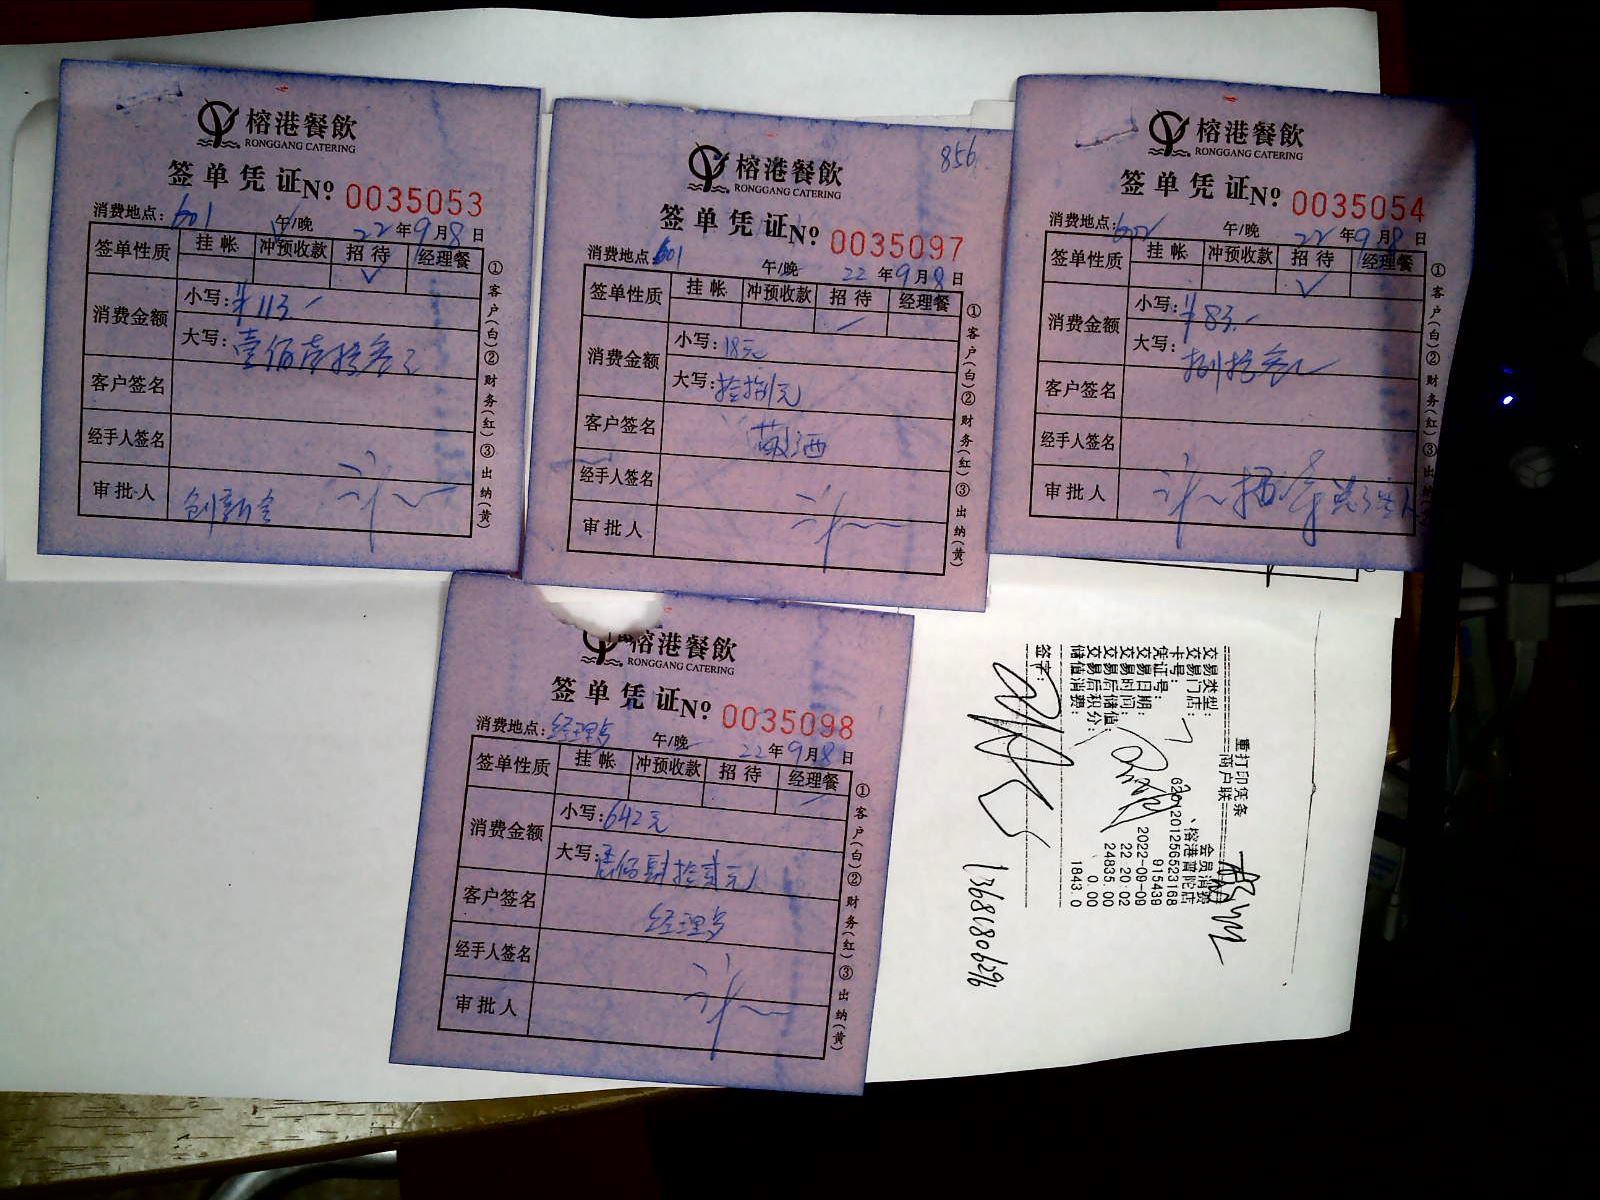 榕港餐飲
RONGGANG CATERING
签单凭证№ 0035053
消费地点：601 午/晚 22年9月8日
签单性质 挂帐 冲预收款 招待 经理餐
✓
消费金额 小写：¥113
大写：壹佰壹拾叁元
客户签名
经手人签名
审批人
①客户(白)②财务(红)③出纳(黄)
856
榕港餐飲
RONGGANG CATERING
签单凭证№ 0035097
消费地点 601 午/晚 22年9月8日
签单性质 挂帐 冲预收款 招待 经理餐
消费金额 小写：18元
大写：拾捌元
客户签名 敬酒
经手人签名
审批人
①客户(白)②财务(红)③出纳(黄)
榕港餐飲
RONGGANG CATERING
签单凭证№ 0035054
消费地点：602 午/晚 22年9月8日
签单性质 挂帐 冲预收款 招待 经理餐
✓
消费金额 小写：¥83.-
大写：捌拾叁元
客户签名
经手人签名
审批人
①客户(白)②财务(红)③出纳(黄)
榕港餐飲
RONGGANG CATERING
签单凭证№ 0035098
消费地点：经理餐 午/晚 22年9月8日
签单性质 挂帐 冲预收款 招待 经理餐
消费金额 小写：642元
大写：陆佰肆拾贰元
客户签名 经理餐
经手人签名
审批人
①客户(白)②财务(红)③出纳(黄)
重打印凭条
商户联
交易类型： 会员消费
交易门店： 榕港普陀店
卡号： 6201201256523168
凭证号： 915439
交易日期： 2022-09-09
交易时间： 22:20:02
交易后储值： 24835.00
交易后积分： 0.00
储值消费： 1843.0
签字：
13681806296